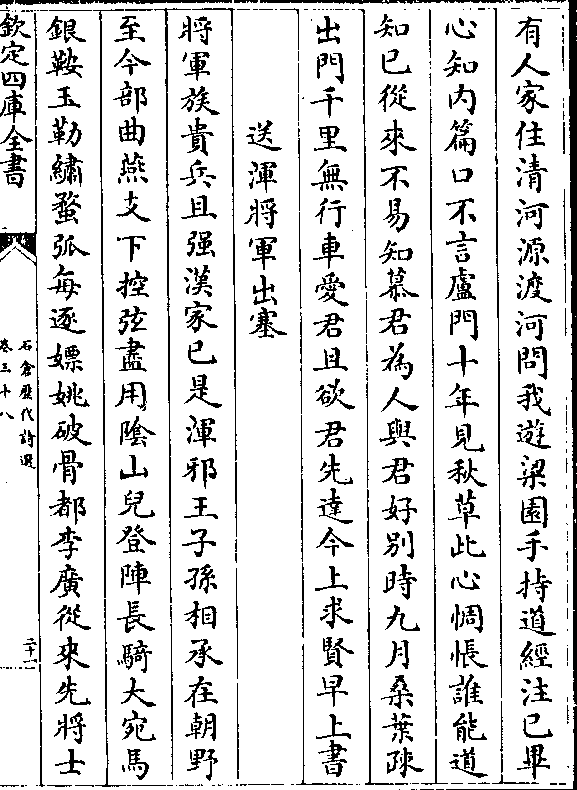 有人家住清河源渡河問我遊梁園手持道經注已畢
心知内篇口不言盧門十年見秋草此心惆悵誰能道
知已從來不易知慕君為人與君好别時九月桑葉疎
出門千里無行車愛君且欲君先達今上求賢早上書
送渾將軍出塞
將軍族貴兵且强漢家已是渾邪王子孫相承在朝野
至今部曲燕支下控弦盡用隂山兒登陣長騎大宛馬
銀鞍玉勒繡蝥弧每逐嫖姚破骨都李廣從來先將士
欽定四庫全書
石倉歴代詩選
卷三十八
二十一